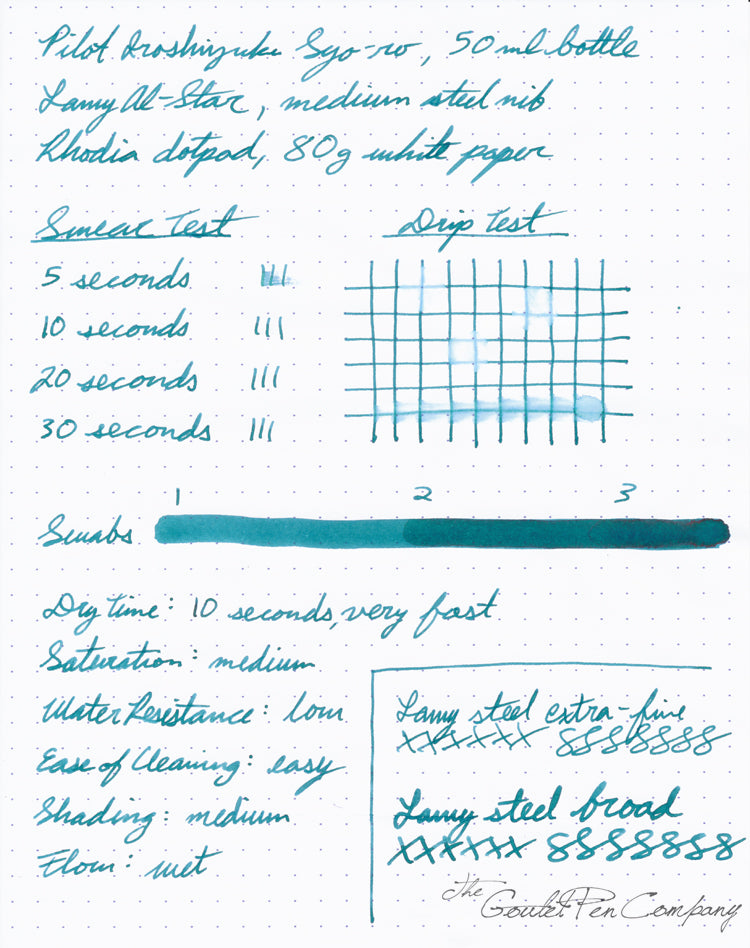 Pilot Iroshizuku Syo-ro, 50ml bottle
Lamy Al-Star, medium steel nib
Rhodia dotpad, 80g white paper
Smear Test
5 seconds
10 seconds
20 seconds
30 seconds
Drip Test
1 2 3
Swabs
Dry time: 10 seconds, very fast
Saturation: medium
Water Resistance: low
Ease of Cleaning: easy
Shading: medium
Flow: wet
Lamy steel extra-fine
xxxxxx 8888888
Lamy steel broad
xxxxxx 8888888
The Goulet Pen Company